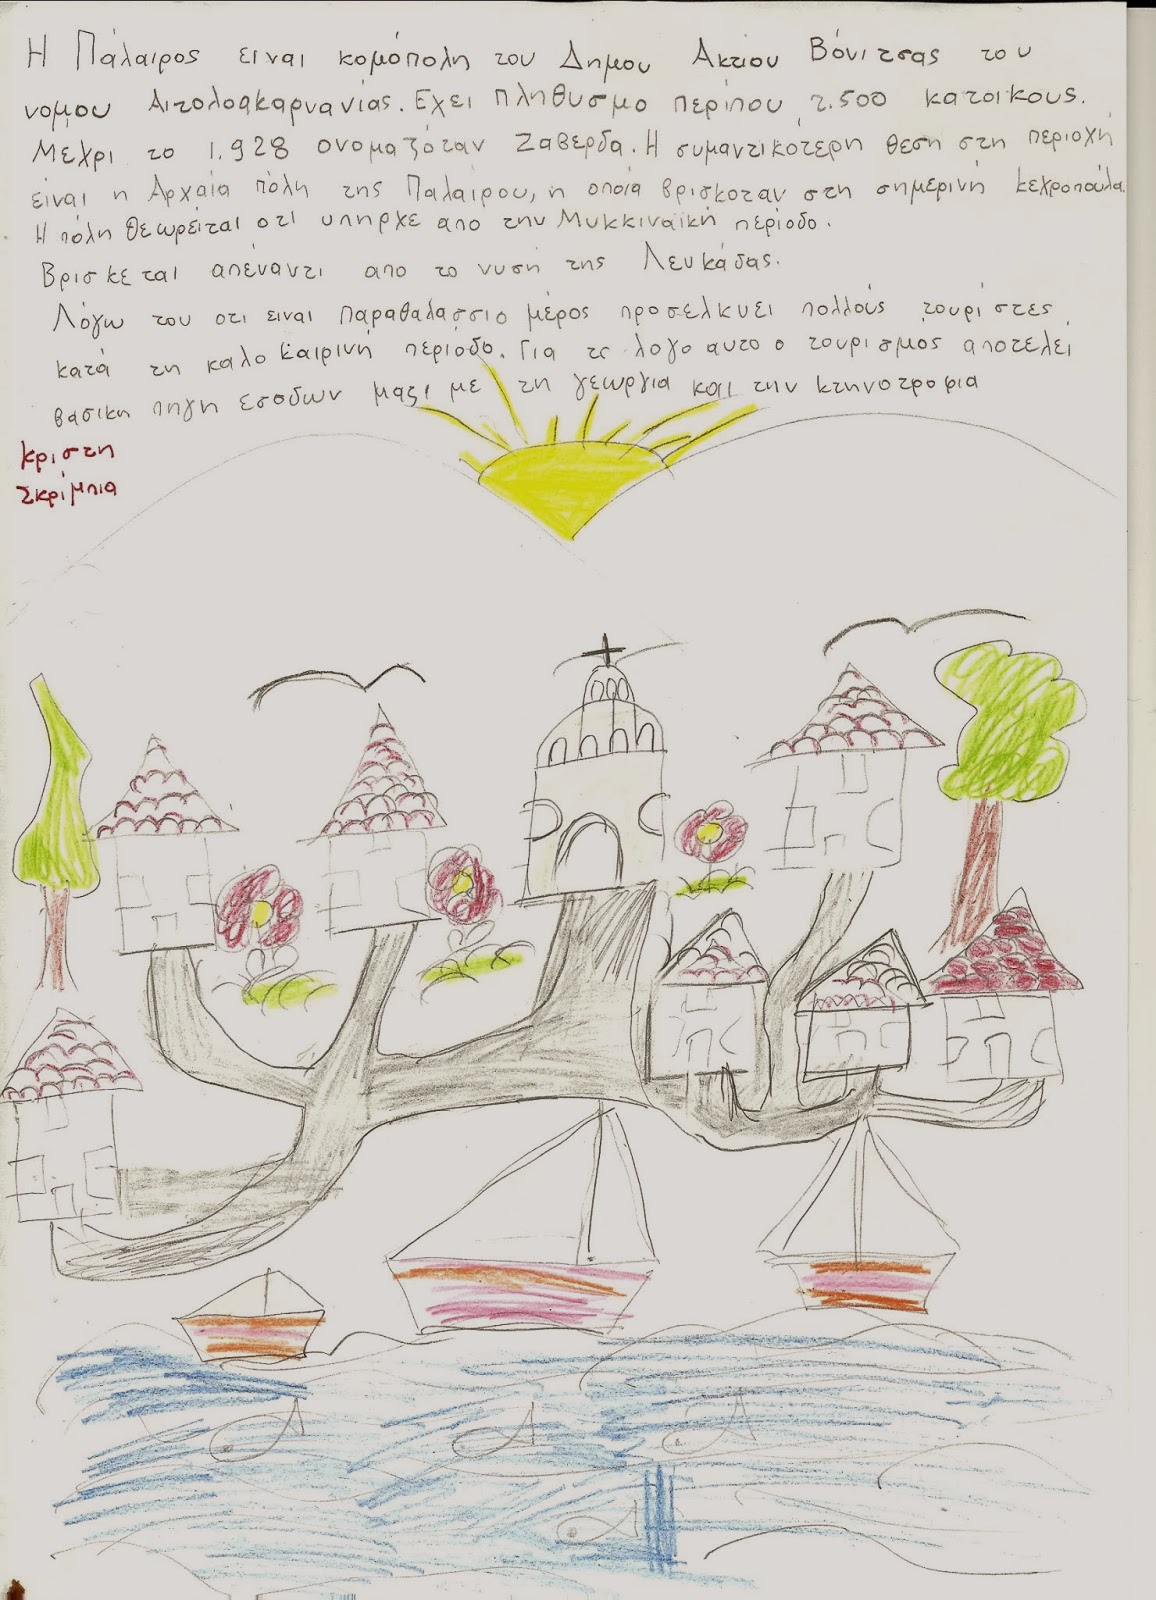 Η Πάλαιρος ειναι κομόπολη του Δημου Ακτιου Βόνιτσας του
νομου Αιτολοακαρνανίας. Εχει πληθυσμο περίπου 2.500 κατοικους.
Μεχρι το 1.928 ονομαζόταν Ζαβερδα. Η συμαντικότερη θεση στη περιοχή
είναι η Αρχαία πόλη της Παλαιρου, η οποία βρισκοταν στη σημερινή κεχροπούλα.
Η πόλη θεωρείται οτι υπηρχε απο την Μυκκιναϊκή περίοδο.
Βρισκεται απέναντι απο το νυσή της Λευκάδας.
Λόγω του οτι ειναι παραθαλασσιο μέρος προσελκυει πολλούς τουρίστες
κατά τη καλοκαιρινή περίοδο. Για το λογο αυτο ο τουρισμός αποτελεί
βασικη πηγη εσοδων μαζι με τη γεωργια και την κτηνοτροφια
Κριστη
Σκρίμπια